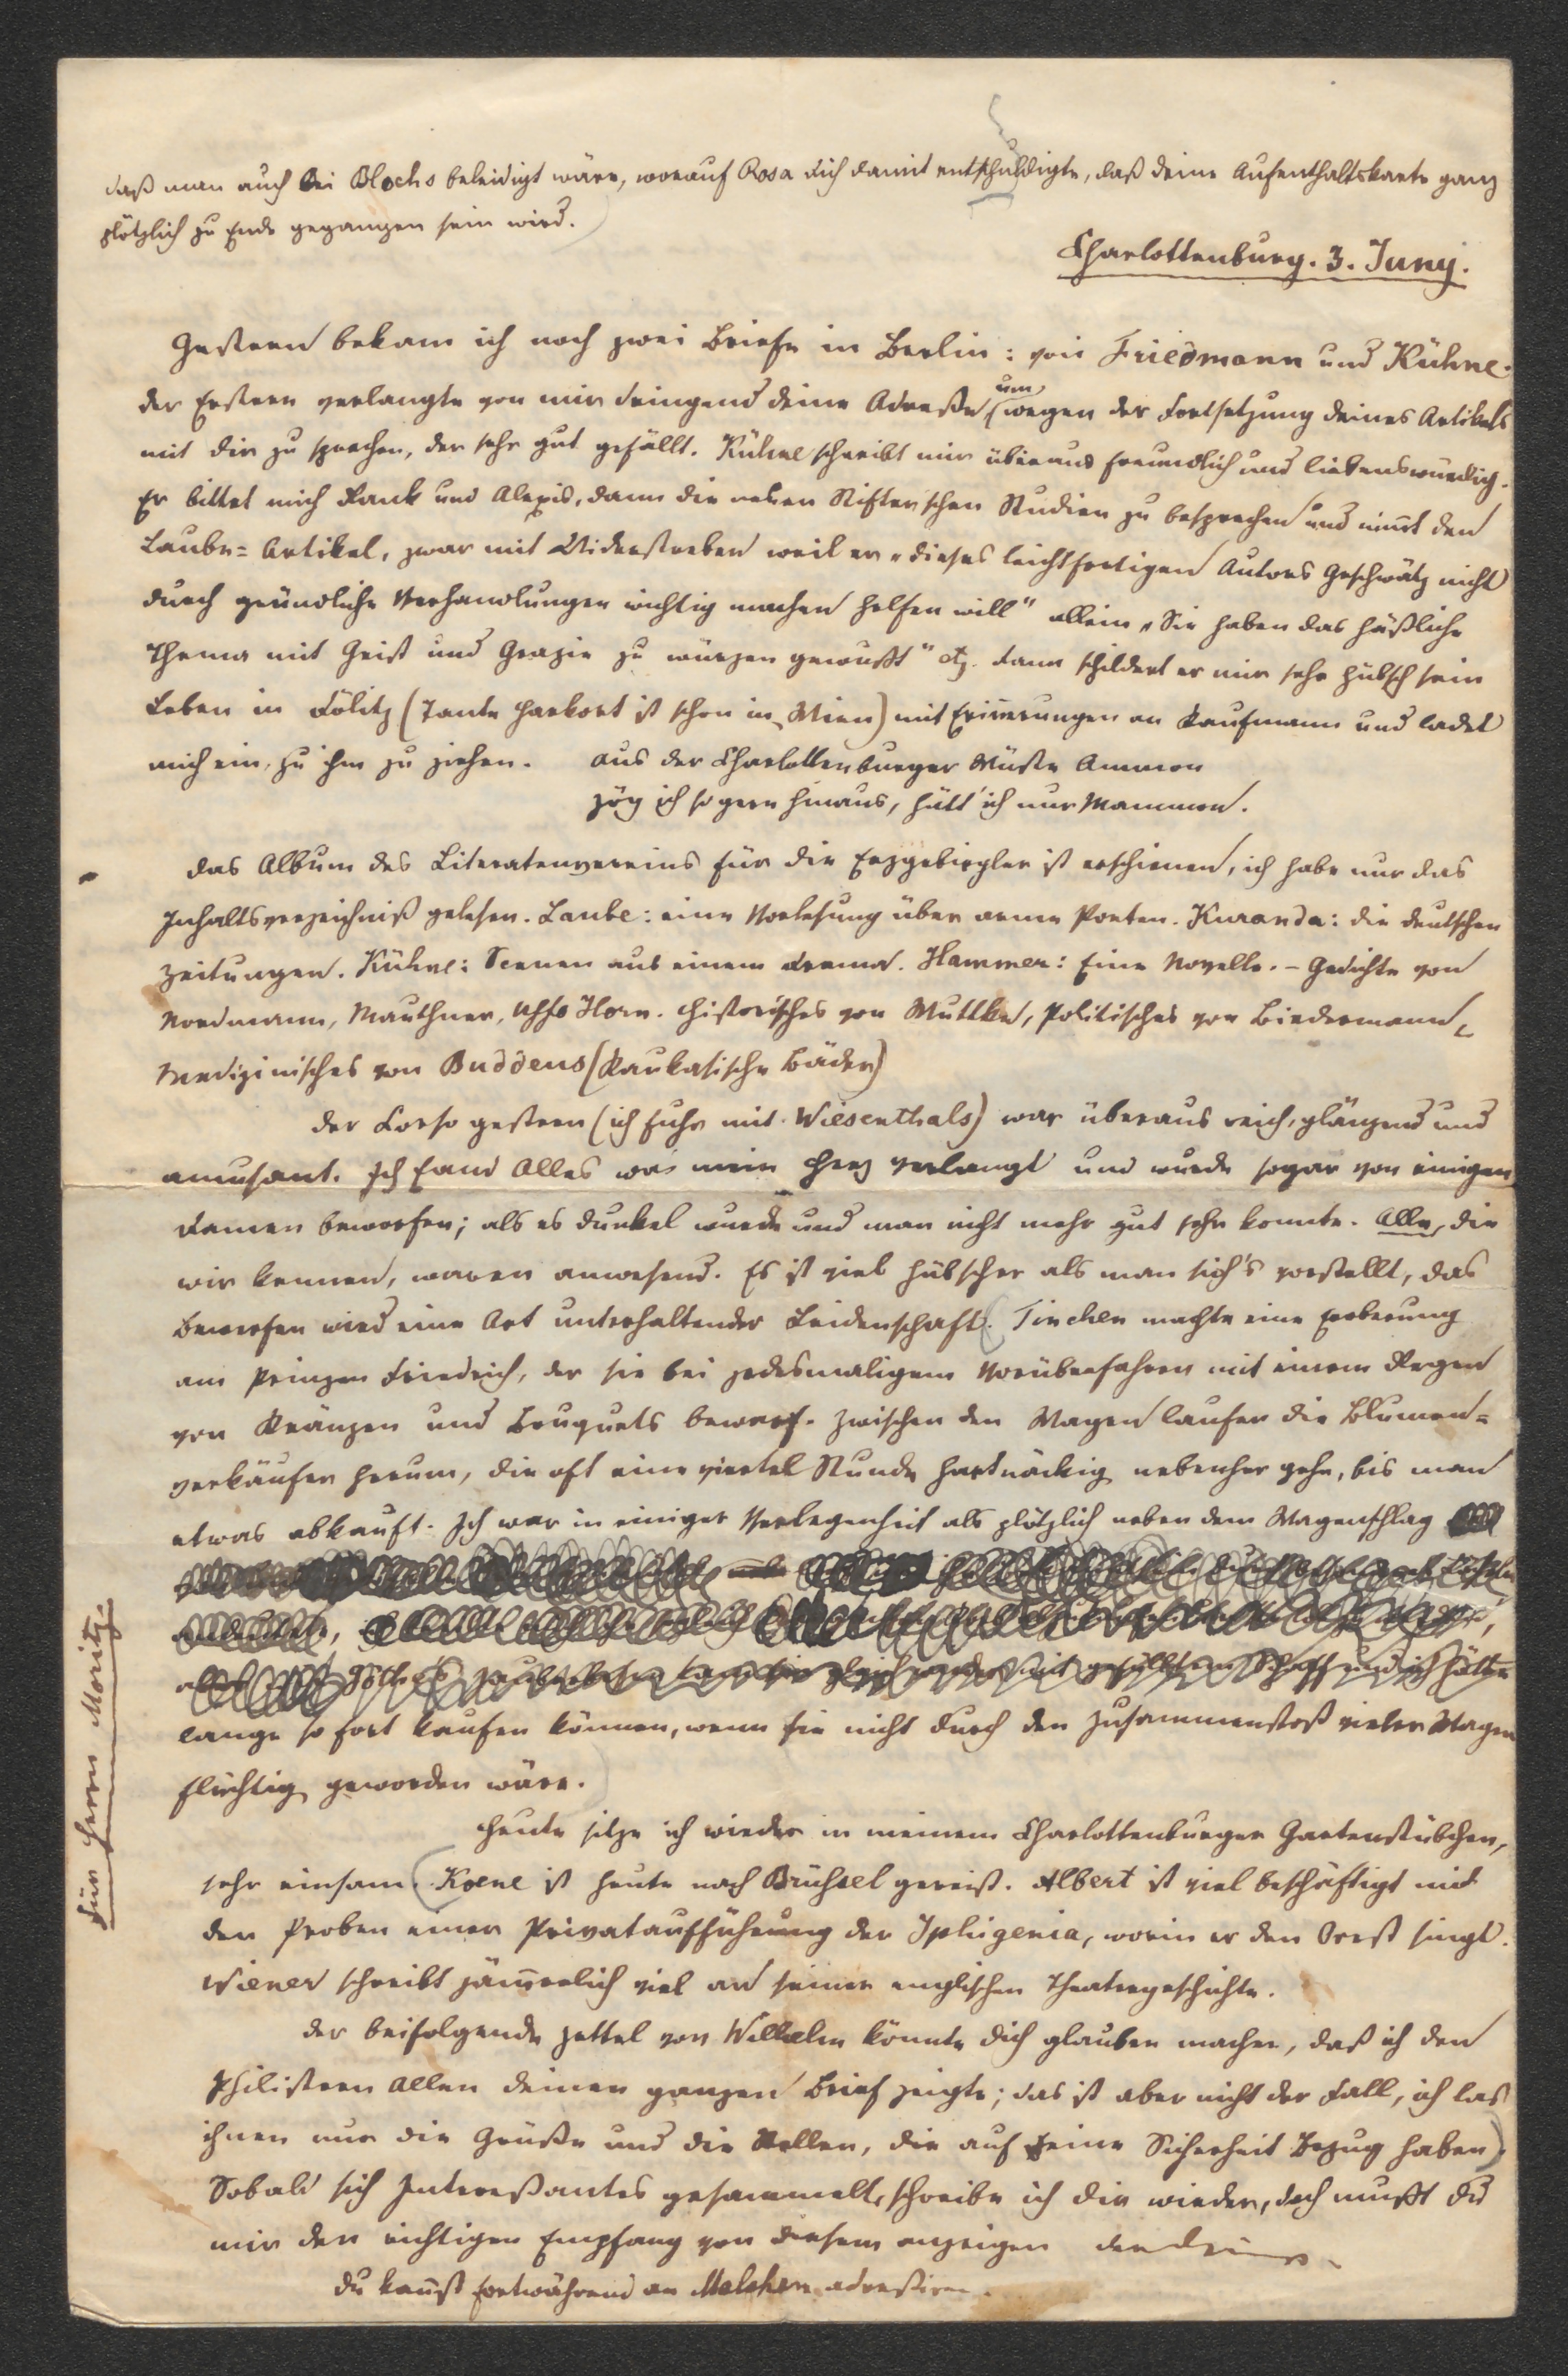 daß man auch bei Blochs beleidigt wäre, worauf Rosa dich damit entschuldigte, daß deine Aufenthaltskarte ganz
plötzlich zu Ende gegangen sein wird.
Charlottenburg. 3. Juny.
Gestern bekam ich noch zwei Briefe in Berlin: von Friedmann und Kühne.
der Erstere verlangte von mir dringend deine Adreße um wegen der Fortsetzung deines Artikels
mit dir zu sprechen, der sehr gut gefällt. Kühne schreibt mir überaus freundlich und liebenswürdig.
Er bittet mich Rank und Alexis, dann die neuen Stifter'schen Studien zu besprechen und nimt den
Laube-Artikel, zwar mit Widerstreben weil er „dieses leichtfertigen Autors Geschwätz nicht
durch gründliche Verhandlungen wichtig machen helfen will" allein „Sie haben das häßliche
Thema mit Geist und Grazie zu würzen gewußt" etz. dann schildert er mir sehr hübsch sein
Leben in Gölitz (Tante Harkort ist schon in Wien) mit Erinerungen an Kaufmann und ladet
mich ein, zu ihm zu ziehen. Aus der Charlottenburger Wüste Ammon
zög ich so gern hinaus, hätt' ich nur Mammon.
das Album des Literatenvereins für die Erzgebirgler ist erschienen, ich habe nur das
Inhaltsverzeichniß gelesen. Laube: eine Vorlesung über arme Poeten. Kuranda: die deutschen
Zeitungen. Kühne: Scenen aus einem Drama. Hammer: Eine Novelle. – Gedichte von
Nordmann, Mauthner, Uffo Horn. Historisches von Wuttke, Politisches von Biedermann,
Medizinisches von Buddeus (Kaukasische Bäder)
der Corso gestern (ich fuhr mit Wiesenthals) war überaus reich, glänzend und
amusant. Ich fand Alles was mein Herz verlangt und wurde sogar von einigen
Damen beworfen; als es dunkel wurde und man nicht mehr gut sehn konnte. Alle, die
wir kennen, waren anwesend. Es ist viel hübscher als man sich's vorstellt, das
Bewerfen wird eine Art unterhaltender Leidenschaft. Tinchen machte eine Eroberung
am Prinzen Friedrich, der sie bei jedesmaligem Vorüberfahren mit einem Regen
von Kränzen und Bouquets bewarf. Zwischen den Wagen laufen die Blumen-
verkäufer herum, die oft eine viertel Stunde hartnäckig nebenher gehn, bis man
etwas abkauft. Ich war in einiger Verlegenheit als plötzlich neben dem Wagenschlag
kam sie gleich wieder mit gefülltem Schaff und ich hätte
lange so fort kaufen können, wenn sie nicht durch den Zusammenstoß vieler Wagen
flüchtig geworden wäre.
Heute sitze ich wieder in meinem Charlottenburger Gartenstübchen,
sehr einsam. ist heute nach Brüssel gereist. Albert ist viel beschäftigt mit
den Proben einer Privataufführung der Iphigenia, worin er den Orest singt.
Wiener schreibt jämerlich viel an seiner englischen Theatergeschichte.
der beifolgende Zettel von Wilhelm könnte dich glauben machen, daß ich den
Philistern allen deinen ganzen Brief zeigte; das ist aber nicht der Fall, ich las
ihnen nur die Grüße und die Stellen, die auf seine Sicherheit Bezug haben.
Sobald sich Intereßantes gesammelt, schreibe ich dir wieder, doch mußt du
mir den richtigen Empfang von diesem anzeigen
du kanst fortwährend an adreßiren.
Für Herrn Moritz.